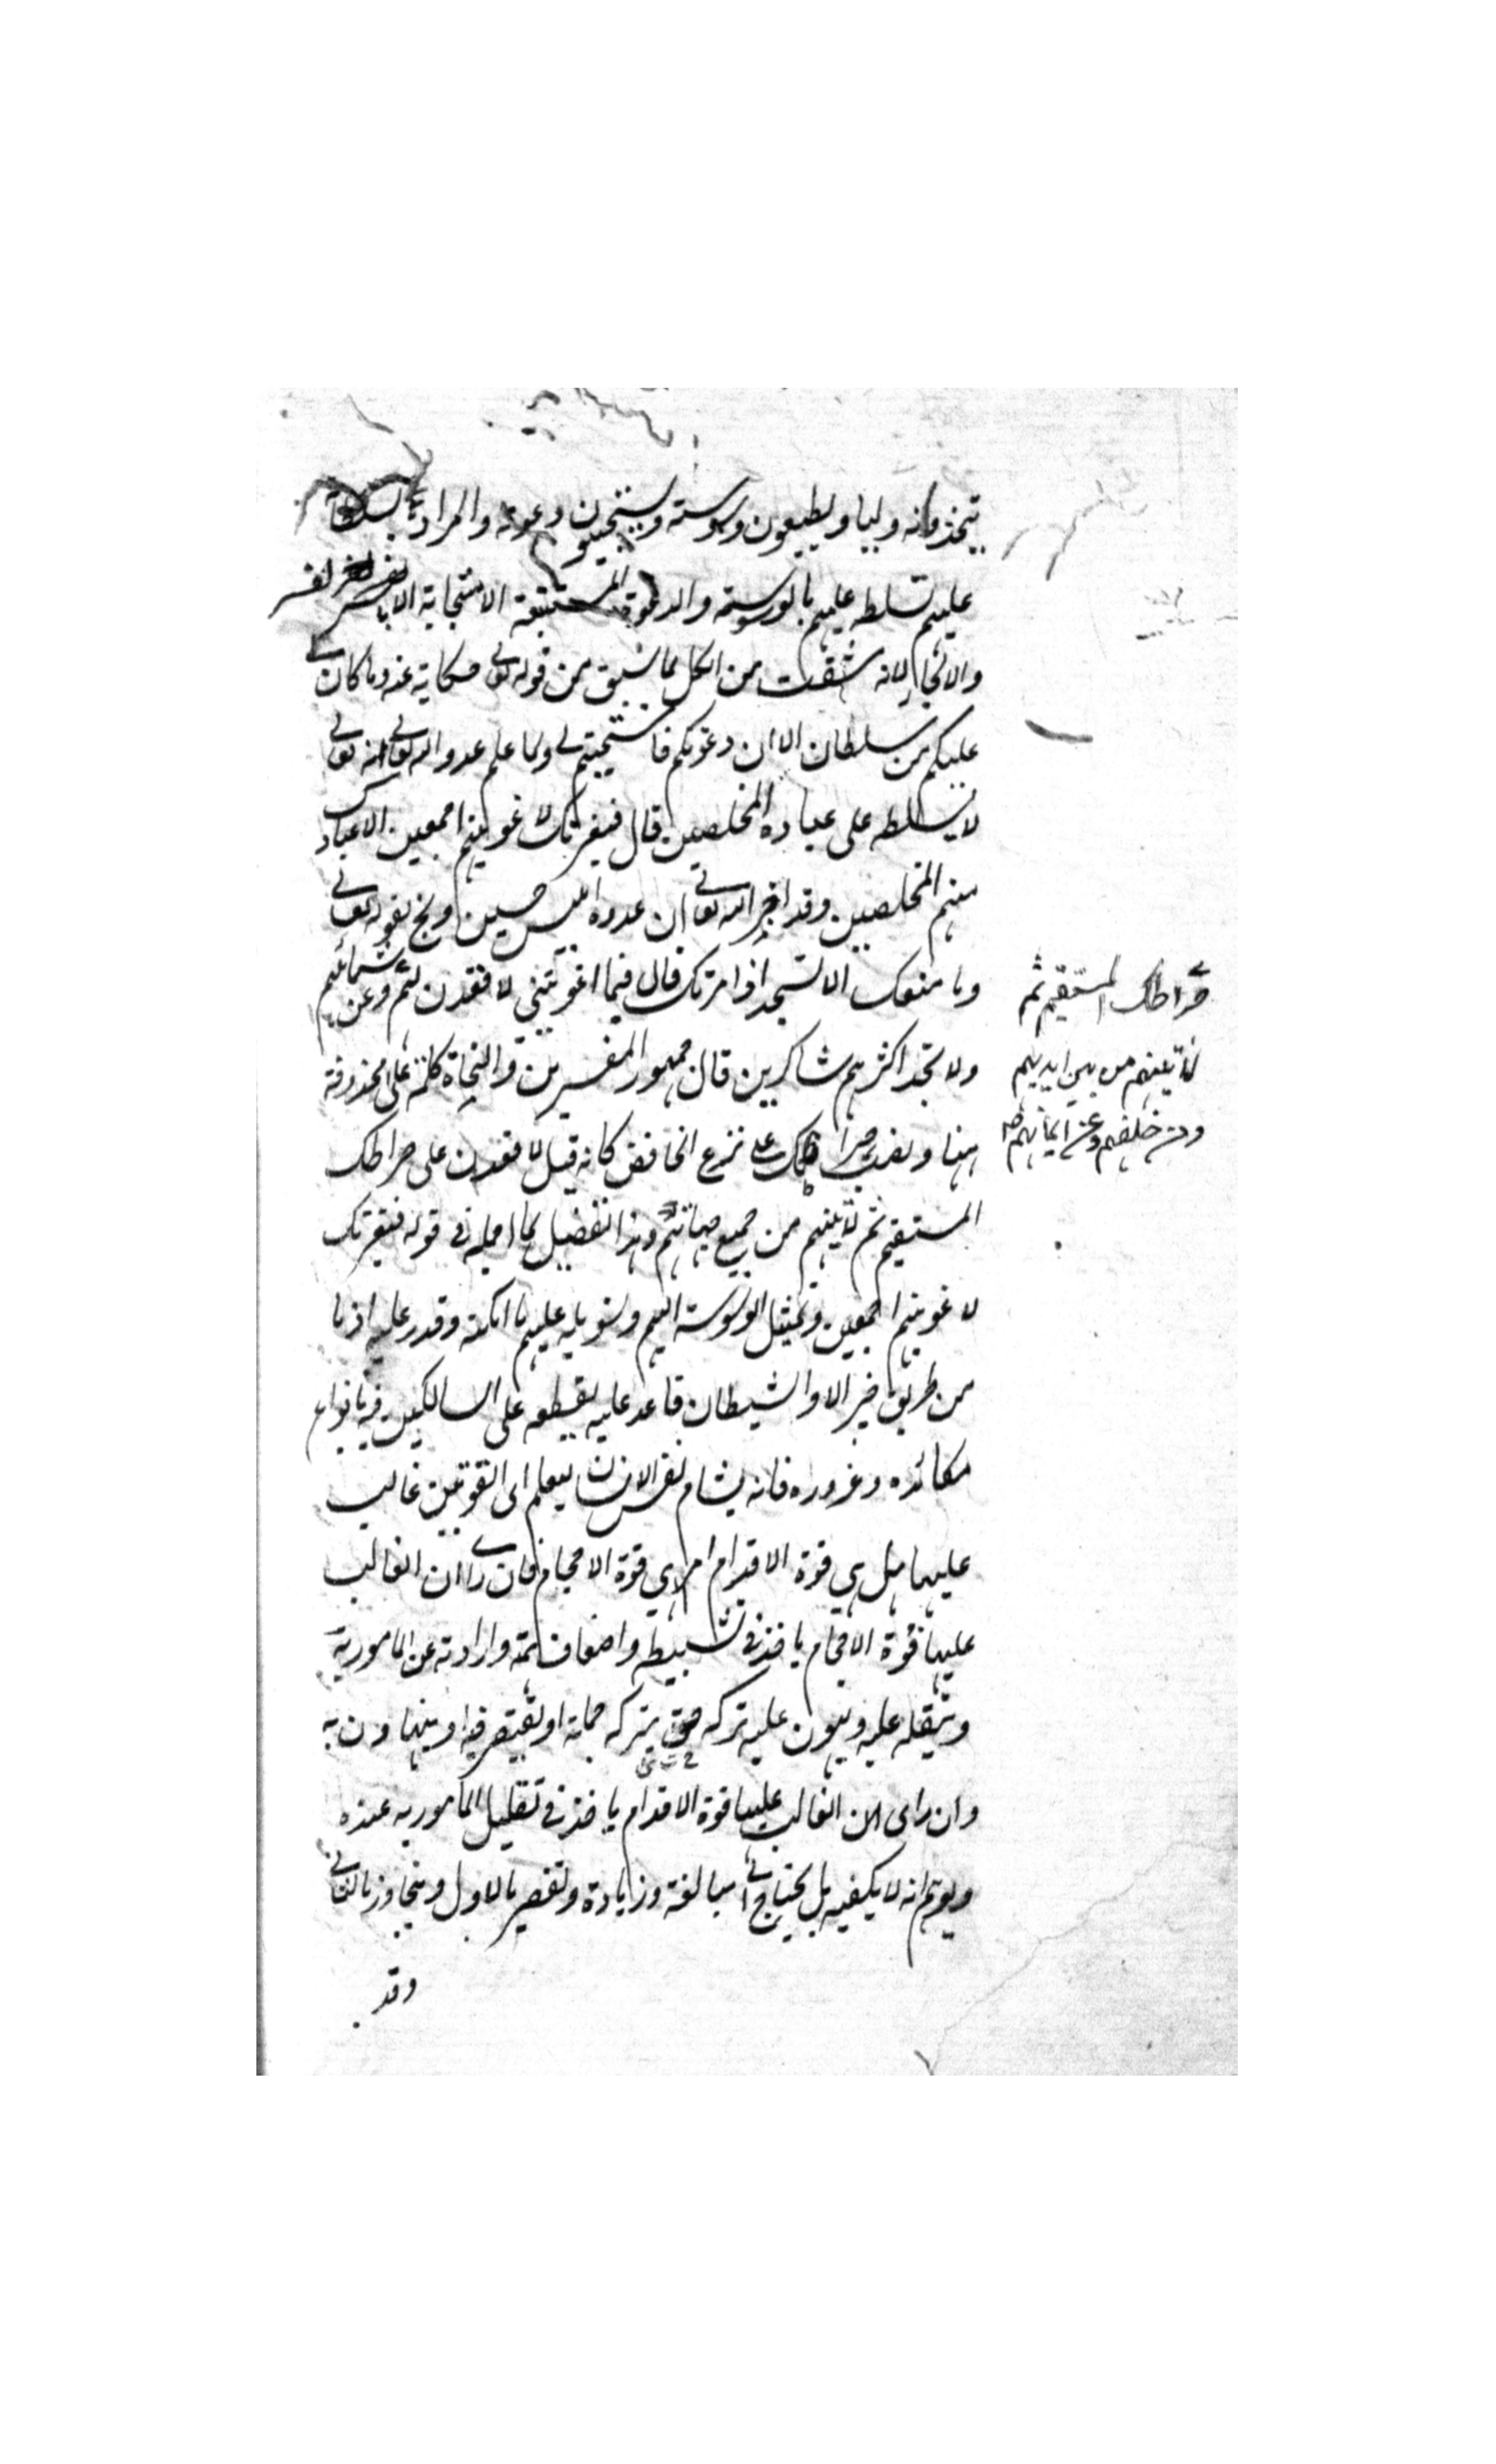 يتخذونه وليا ويطيعون وسوسته ويستجيبون دعوته والمراد
عليهم تسلطه عليهم بالوسوسة والدعوة المستتبعة الاستجابة
والالجاء لانه من الكل لما سبق من قوله تعالى حكاية عنه وما كان لى
عليكم من سلطان الا ان دعوتكم فاستجبتم لى ولما علم عدو الله تعالى انه تعالى
لا يسلطه على عباده المخلصين قال فبعزتك لاغوينهم اجمعين الا عبادك
منهم المخلصين وقد اخبر الله تعالى ان عدوه ابليس حين وبخ بقوله تعالى
وما منعك الا تسجد اذ امرتك قال فبما اغويتنى لاقعدن لهم وعن شمائلهم
صراطك المستقيم ثم
لآتينهم من بين ايديهم
ومن خلفهم وعن ايمانهم صح
ولا تجد اكثرهم شاكرين قال جمهور المفسرين والنحاة كلمة على محذوفة
هنا ونصب صراطك على نزع الخافض كانه قيل لاقعدن على صراطك
المستقيم ثم لآتينهم من جميع جهاتهم وهذا تفصيل لما اجمله فى قوله فبعزتك
لاغوينهم اجمعين وتمثيل لوسوسته اليهم وتسويله عليهم ما امكنه وقدر عليه اذ ما
من طريق خير الا والشيطان قاعد عليه يقطعه على السالكين فيه بانواع
مكائده وغروره فانه يشام نفس الانسان ليعلم اى القوتين غالب
عليها هل هي قوة الاقدام ام هي قوة الاحجام فان رأى ان الغالب
عليها قوة الاحجام ياخذ فى تثبيطه واضعاف همته وارادته عن المامور به
ويثقله عليه ويهون عليه تركه حتى يتركه جملة او يقتصر فيه او يتهاون به
وان راى ان الغالب عليها قوة الاقدام ياخذ فى تقليل المأمور به عنده
ويوهم انه لا يكفيه بل يحتاج الى مبالغة وزيادة وتقصير بالاول ويتجاوز بالثانى
وقد